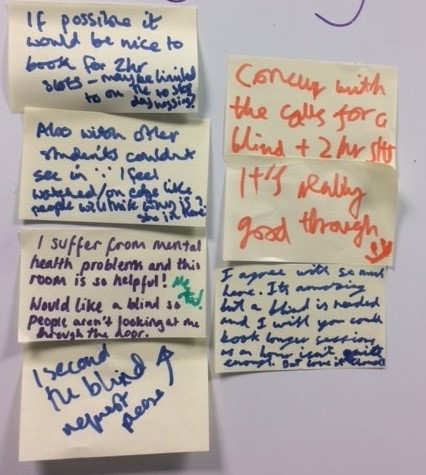 If possible it
would be nice to
book for 2hr
slots - maybe limited
to on the no slot
days
Also wish other
students couldn't
see in ∵ I feel
watched/on edge like
people will
she in here
I suffer from mental
health problems and this
room is so helpful! Me
too!
Would like a blind so
people aren't looking at me
through the door.
I second
the blind
request
please
Concur with
the calls for a
blind + 2hr slot
It's really
good though
I agree with so much
here. Its amazing
but a blind is needed
and I wish you could
book longer sessions
as an hour isn't quite
enough. But love it